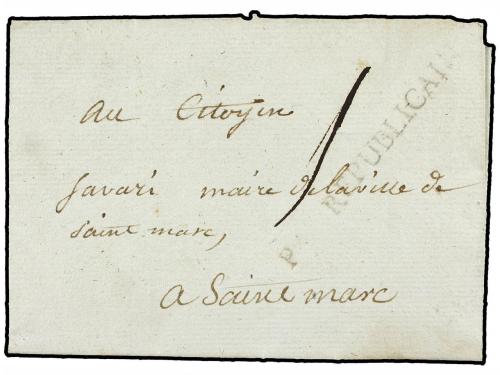 Au Citoyen
Savari maire de laville de
Saint marc,
a Saint marc
P RÉPUBLICAIN